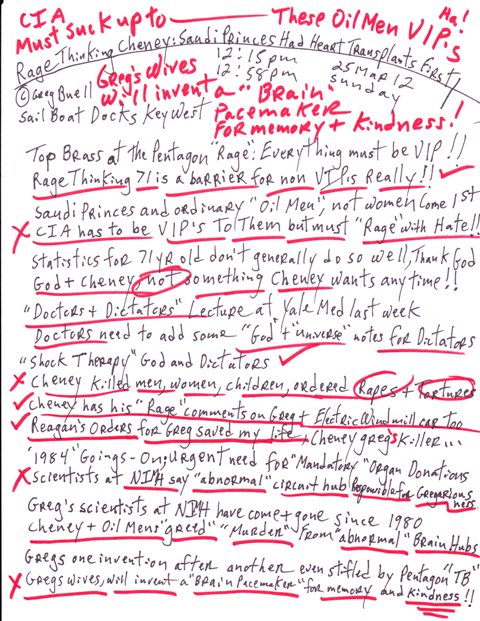 CIA Must Suck up to — These Oil Men VIP's Ha!
Rage Thinking Cheney: Saudi Princes Had Heart Transplants First
12:15pm
12:58pm
25 Mar 12
Sunday
© Greg Buell
Sail Boat Docks Key West
Greg's Wives
will invent
a "Brain"
Pacemaker
For memory + Kindness!
Top Brass at the Pentagon "Rage": Everything must be VIP!!
Rage Thinking 71 is a barrier for non VIP's Really!!
Saudi Princes and ordinary "Oil Men", not women Come 1st
X CIA has to be VIP's To Them but must "Rage" with Hate!!
Statistics for 71 yr old don't generally do so well, Thank God
God + Cheney not something Cheney wants anytime!!
"Doctors + Dictators" Lecture at Yale Med last week
Doctors need to add some "God" + "universe" notes for Dictators
"Shock Therapy" God and Dictators ✓
X Cheney Killed men, women, children, ordered Rapes + Tortures
✓ Cheney has his "Rage" comments on Greg + Electric Windmill car Too
✓ Reagan's Orders for Greg saved my life, Cheney greg's Killer...
"1984" Goings-On; urgent need for "Mandatory" Organ Donations
X Scientists at NIMH say "abnormal" circuit hub Responsible for Gregariousness
Greg's scientists at NIMH have come + gone since 1980
Cheney + Oil Mens "greed" "Murder" From "abnormal" Brain Hubs
Gregs one invention after another even stifled by Pentagon "TB"
X Gregs wives, will invent a "Brain Pacemaker" for memory and Kindness!!